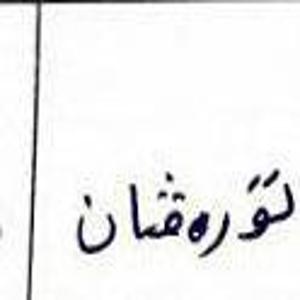 تۆرەڤان